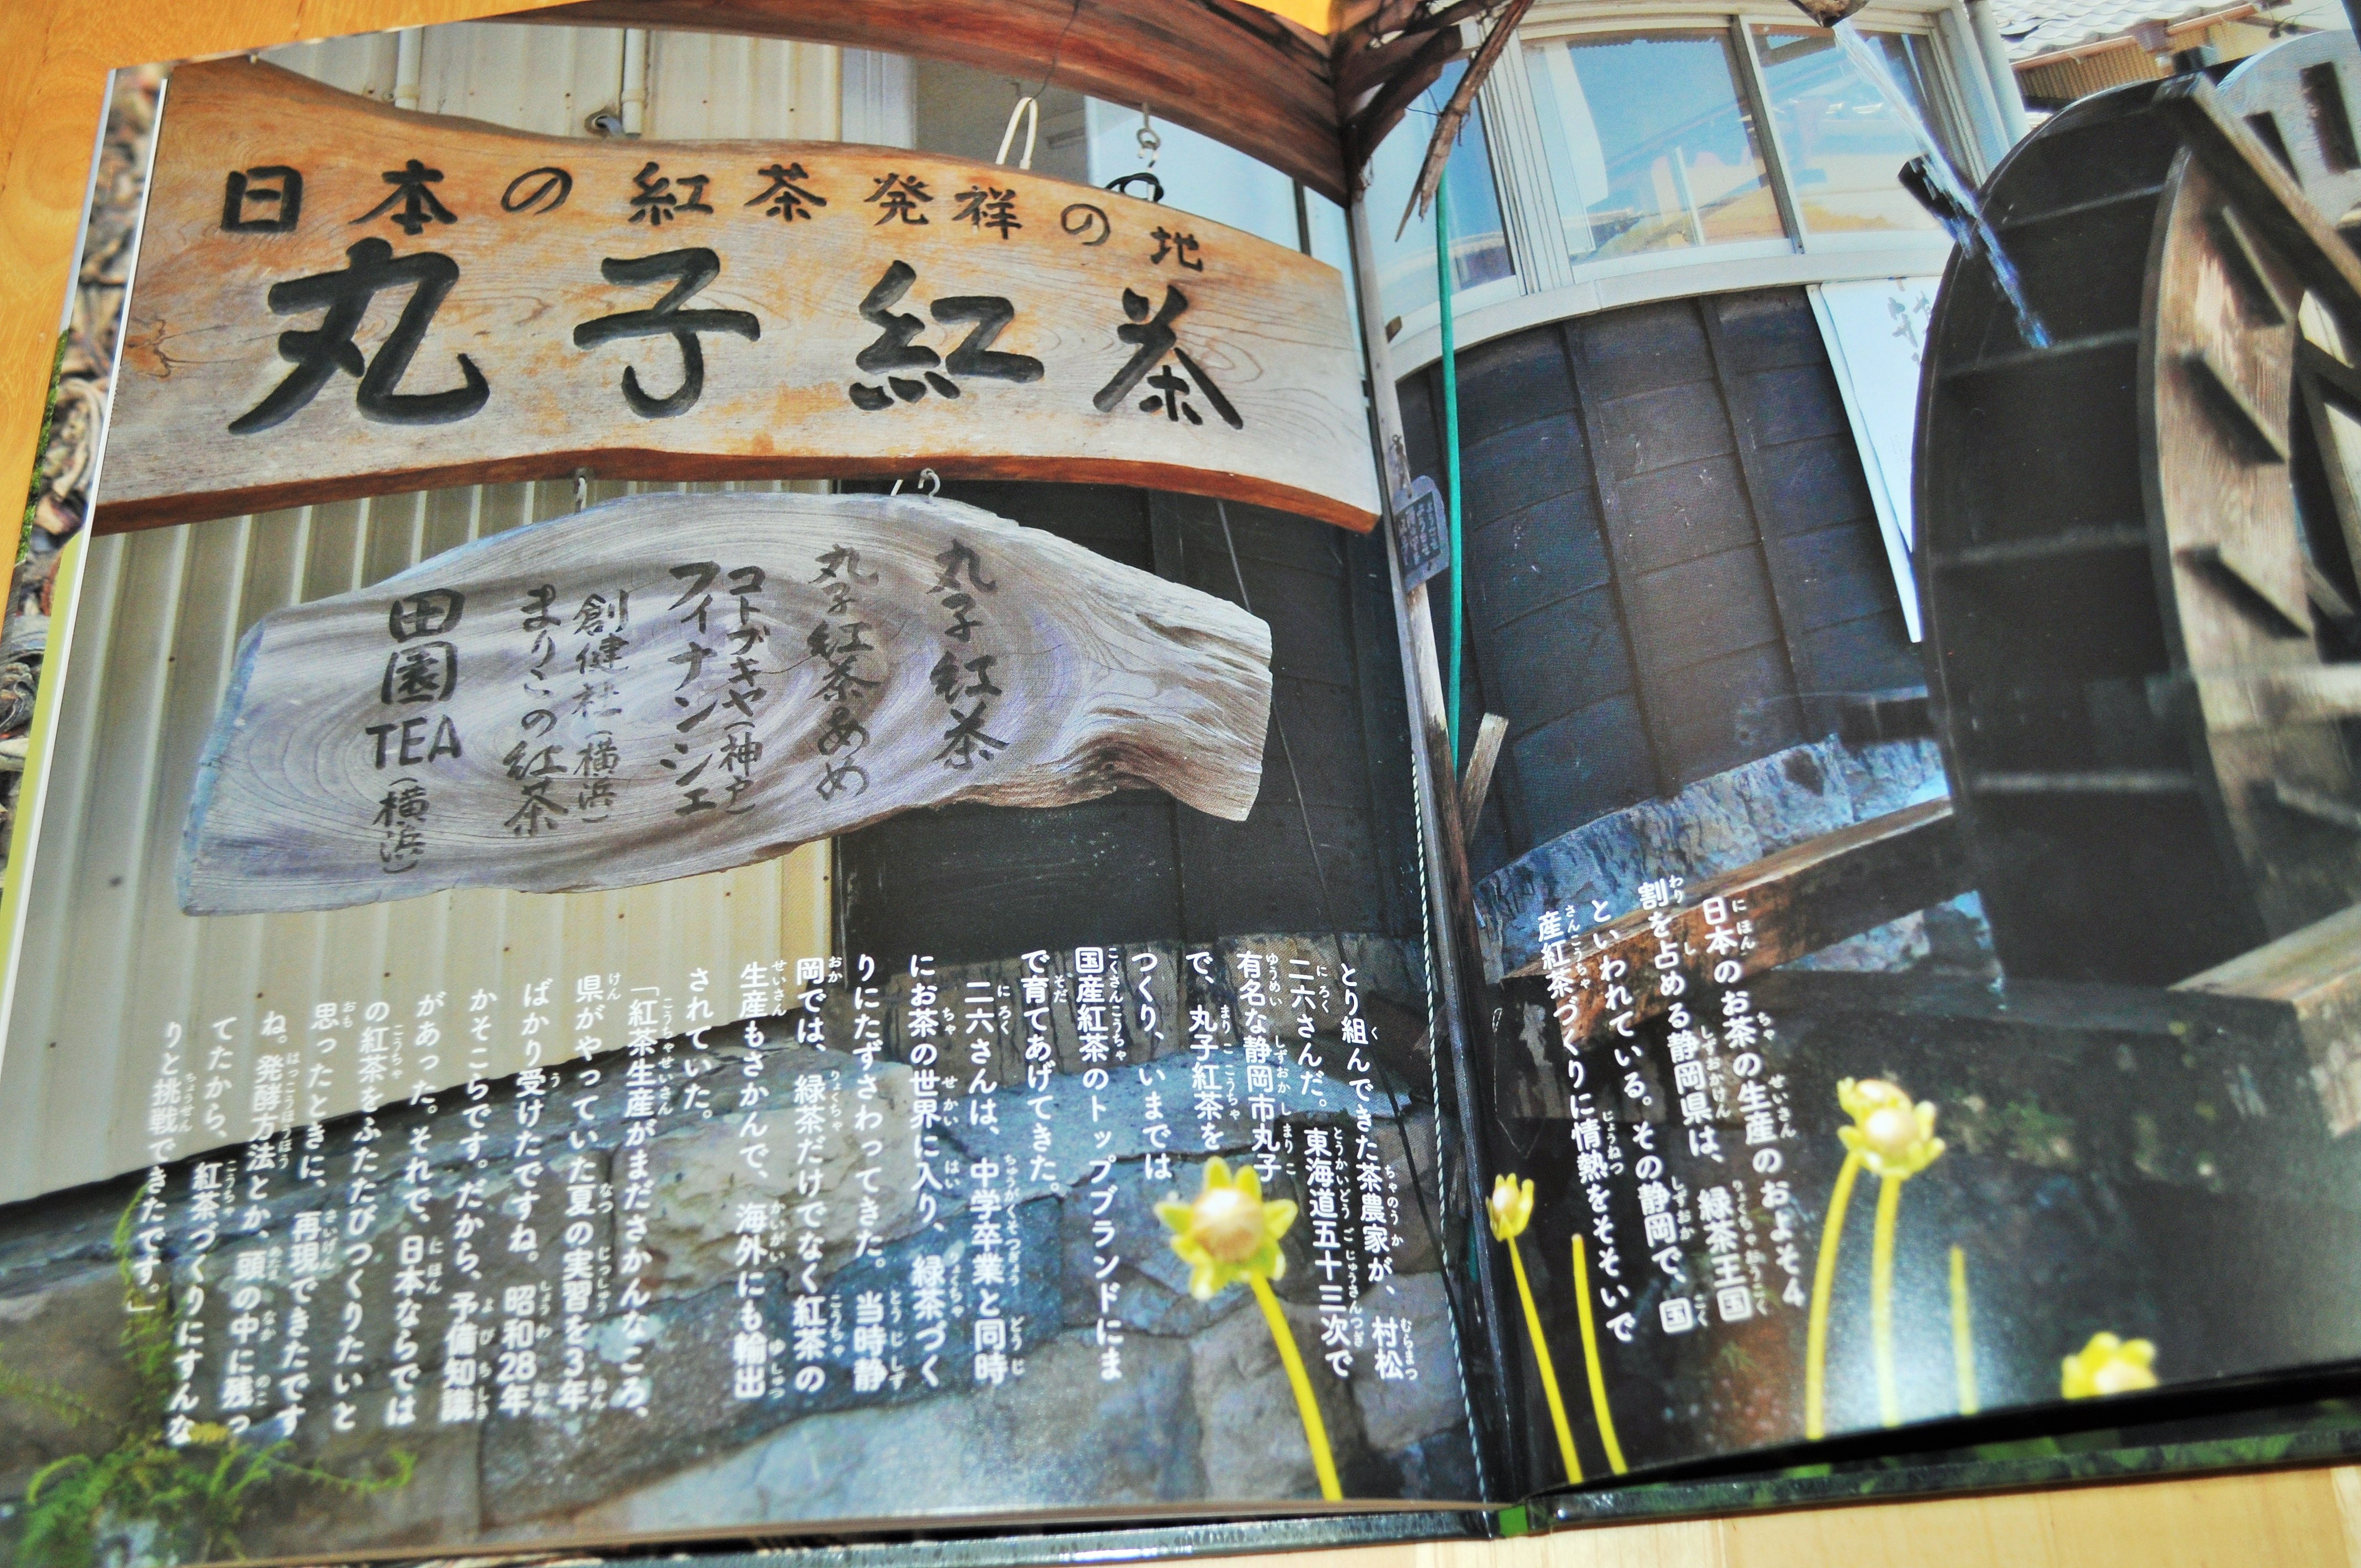 日本の紅茶発祥の地
丸子紅茶
丸子紅茶
丸子紅茶あめ
コトブキヤ(神戸)
フィナンシェ
創健社(横浜)
まりこの紅茶
田園TEA(横浜)
日本のお茶の生産のおよそ4
割を占める静岡県は、緑茶王国
といわれている。その静岡で、国
産紅茶づくりに情熱をそそいで
とり組んできた茶農家が、村松
二六さんだ。東海道五十三次で
有名な静岡市丸子
で、丸子紅茶を
つくり、いまでは
国産紅茶のトップブランドにま
で育てあげてきた。
二六さんは、中学卒業と同時
にお茶の世界に入り、緑茶づく
りにたずさわってきた。当時静
岡では、緑茶だけでなく紅茶の
生産もさかんで、海外にも輸出
されていた。
「紅茶生産がまださかんなころ、
県がやっていた夏の実習を3年
ばかり受けたですね。昭和28年
かそこらです。だから、予備知識
があった。それで、日本ならでは
の紅茶をふたたびつくりたいと
思ったときに、再現できたです
ね。発酵方法とか、頭の中に残っ
てたから、紅茶づくりにすんな
りと挑戦できたです。」